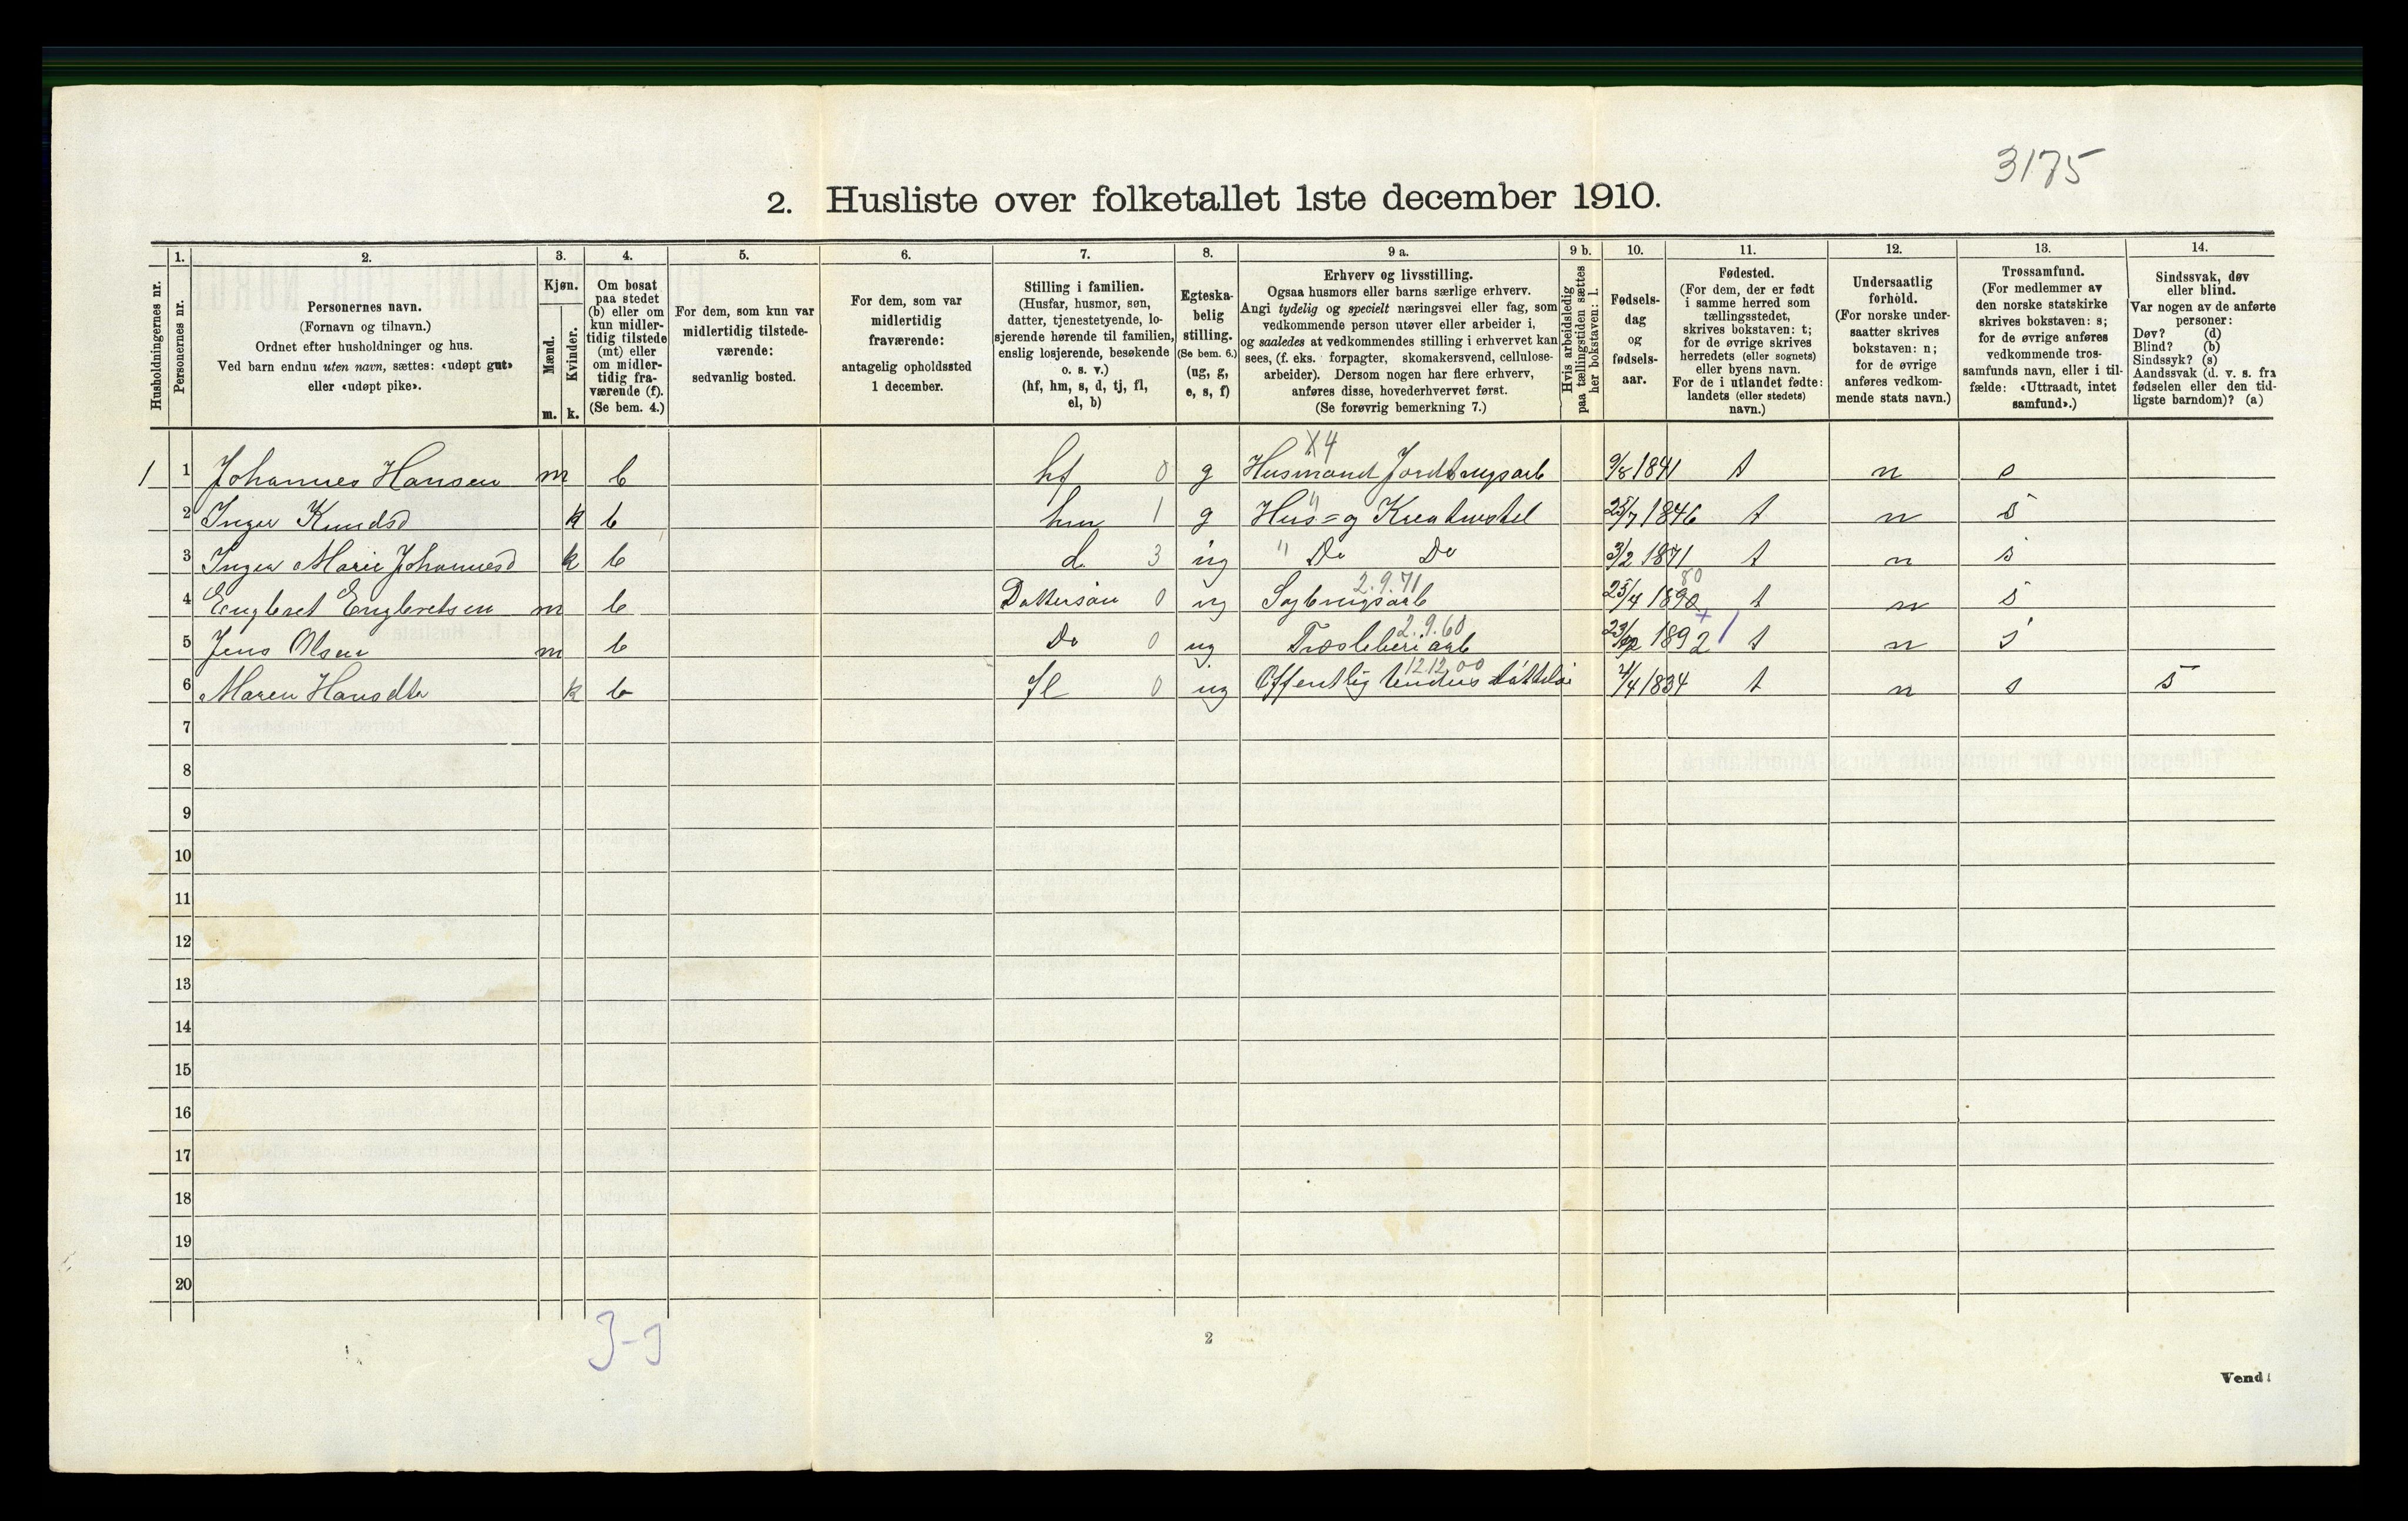 3175
2. Husliste over folketallet 1ste december 1910.
1. 2. 3. 4. 5. 6. 7. 8. 9 a. 9 b. 10. 11. 12. 13. 14.
Husholdningernes nr.
Personernes nr.
Personernes navn.
(Fornavn og tilnavn.)
Ordnet efter husholdninger og hus.
Ved barn endnu uten navn, sættes: «udøpt gut»
eller «udøpt pike».
Kjøn.
Mænd.
Kvinder.
m. k.
Om bosat
paa stedet
(b) eller om
kun midler-
tidig tilstede
(mt) eller
om midler-
tidig fra-
værende (f).
(Se bem. 4.)
For dem, som kun var
midlertidig tilstede-
værende:
sedvanlig bosted.
For dem, som var
midlertidig
fraværende:
antagelig opholdssted
1 december.
Stilling i familien.
(Husfar, husmor, søn,
datter, tjenestetyende, lo-
sjerende hørende til familien,
enslig losjerende, besøkende
o. s. v.)
(hf, hm, s, d, tj, fl,
el, b)
Egteska-
belig
stilling.
(Se bem. 6.)
(ug, g,
e, s, f)
Erhverv og livsstilling.
Ogsaa husmors eller barns særlige erhverv.
Angi tydelig og specielt næringsvei eller fag, som
vedkommende person utøver eller arbeider i,
og saaledes at vedkommendes stilling i erhvervet kan
sees, (f. eks. forpagter, skomakersvend, cellulose-
arbeider). Dersom nogen har flere erhverv,
anføres disse, hovederhvervet først.
(Se forøvrig bemerkning 7.)
Hvis arbeidsledig
paa tællingstiden sættes
her bokstaven: l.
Fødsels-
dag
og
fødsels-
aar.
Fødested.
(For dem, der er født
i samme herred som
tællingsstedet,
skrives bokstaven: t;
for de øvrige skrives
herredets (eller sognets)
eller byens navn.
For de i utlandet fødte:
landets (eller stedets)
navn.)
Undersaatlig
forhold.
(For norske under-
saatter skrives
bokstaven: n;
for de øvrige
anføres vedkom-
mende stats navn.)
Trossamfund.
(For medlemmer av
den norske statskirke
skrives bokstaven: s;
for de øvrige anføres
vedkommende tros-
samfunds navn, eller i til-
fælde: «Uttraadt, intet
samfund».)
Sindssvak, døv
eller blind.
Var nogen av de anførte
personer:
Døv? (d)
Blind? (b)
Sindssyk? (s)
Aandssvak (d. v. s. fra
fødselen eller den tid-
ligste barndom)? (a)
X4
1 1 Johannes Hansen m b hf 0 g Husmand Jordbrugsarb 9/8 1841 t n s
2 Inger Knudsd k b hm 1 g Hus= og Kreaturstel 25/7 1846 t n s
3 Inger Marie Johannesd k b d 3 ug " Do Do 3/2 1871 t n s
2.9.71 80
4 Engbret Engbretsen m b Dattersøn 0 ug Sagbrugsarb 25/4 1890 t n s
2.9.60
5 Jens Olsen m b Do 0 ug Træsliberiarb 1892 t n s
12.12.00
6 Maren Hansdtr k b fl 0 ug Offentlig 4/4 1834 t n s s
7
8
9
10
11
12
13
14
15
16
17
18
19
20
2
Vend!